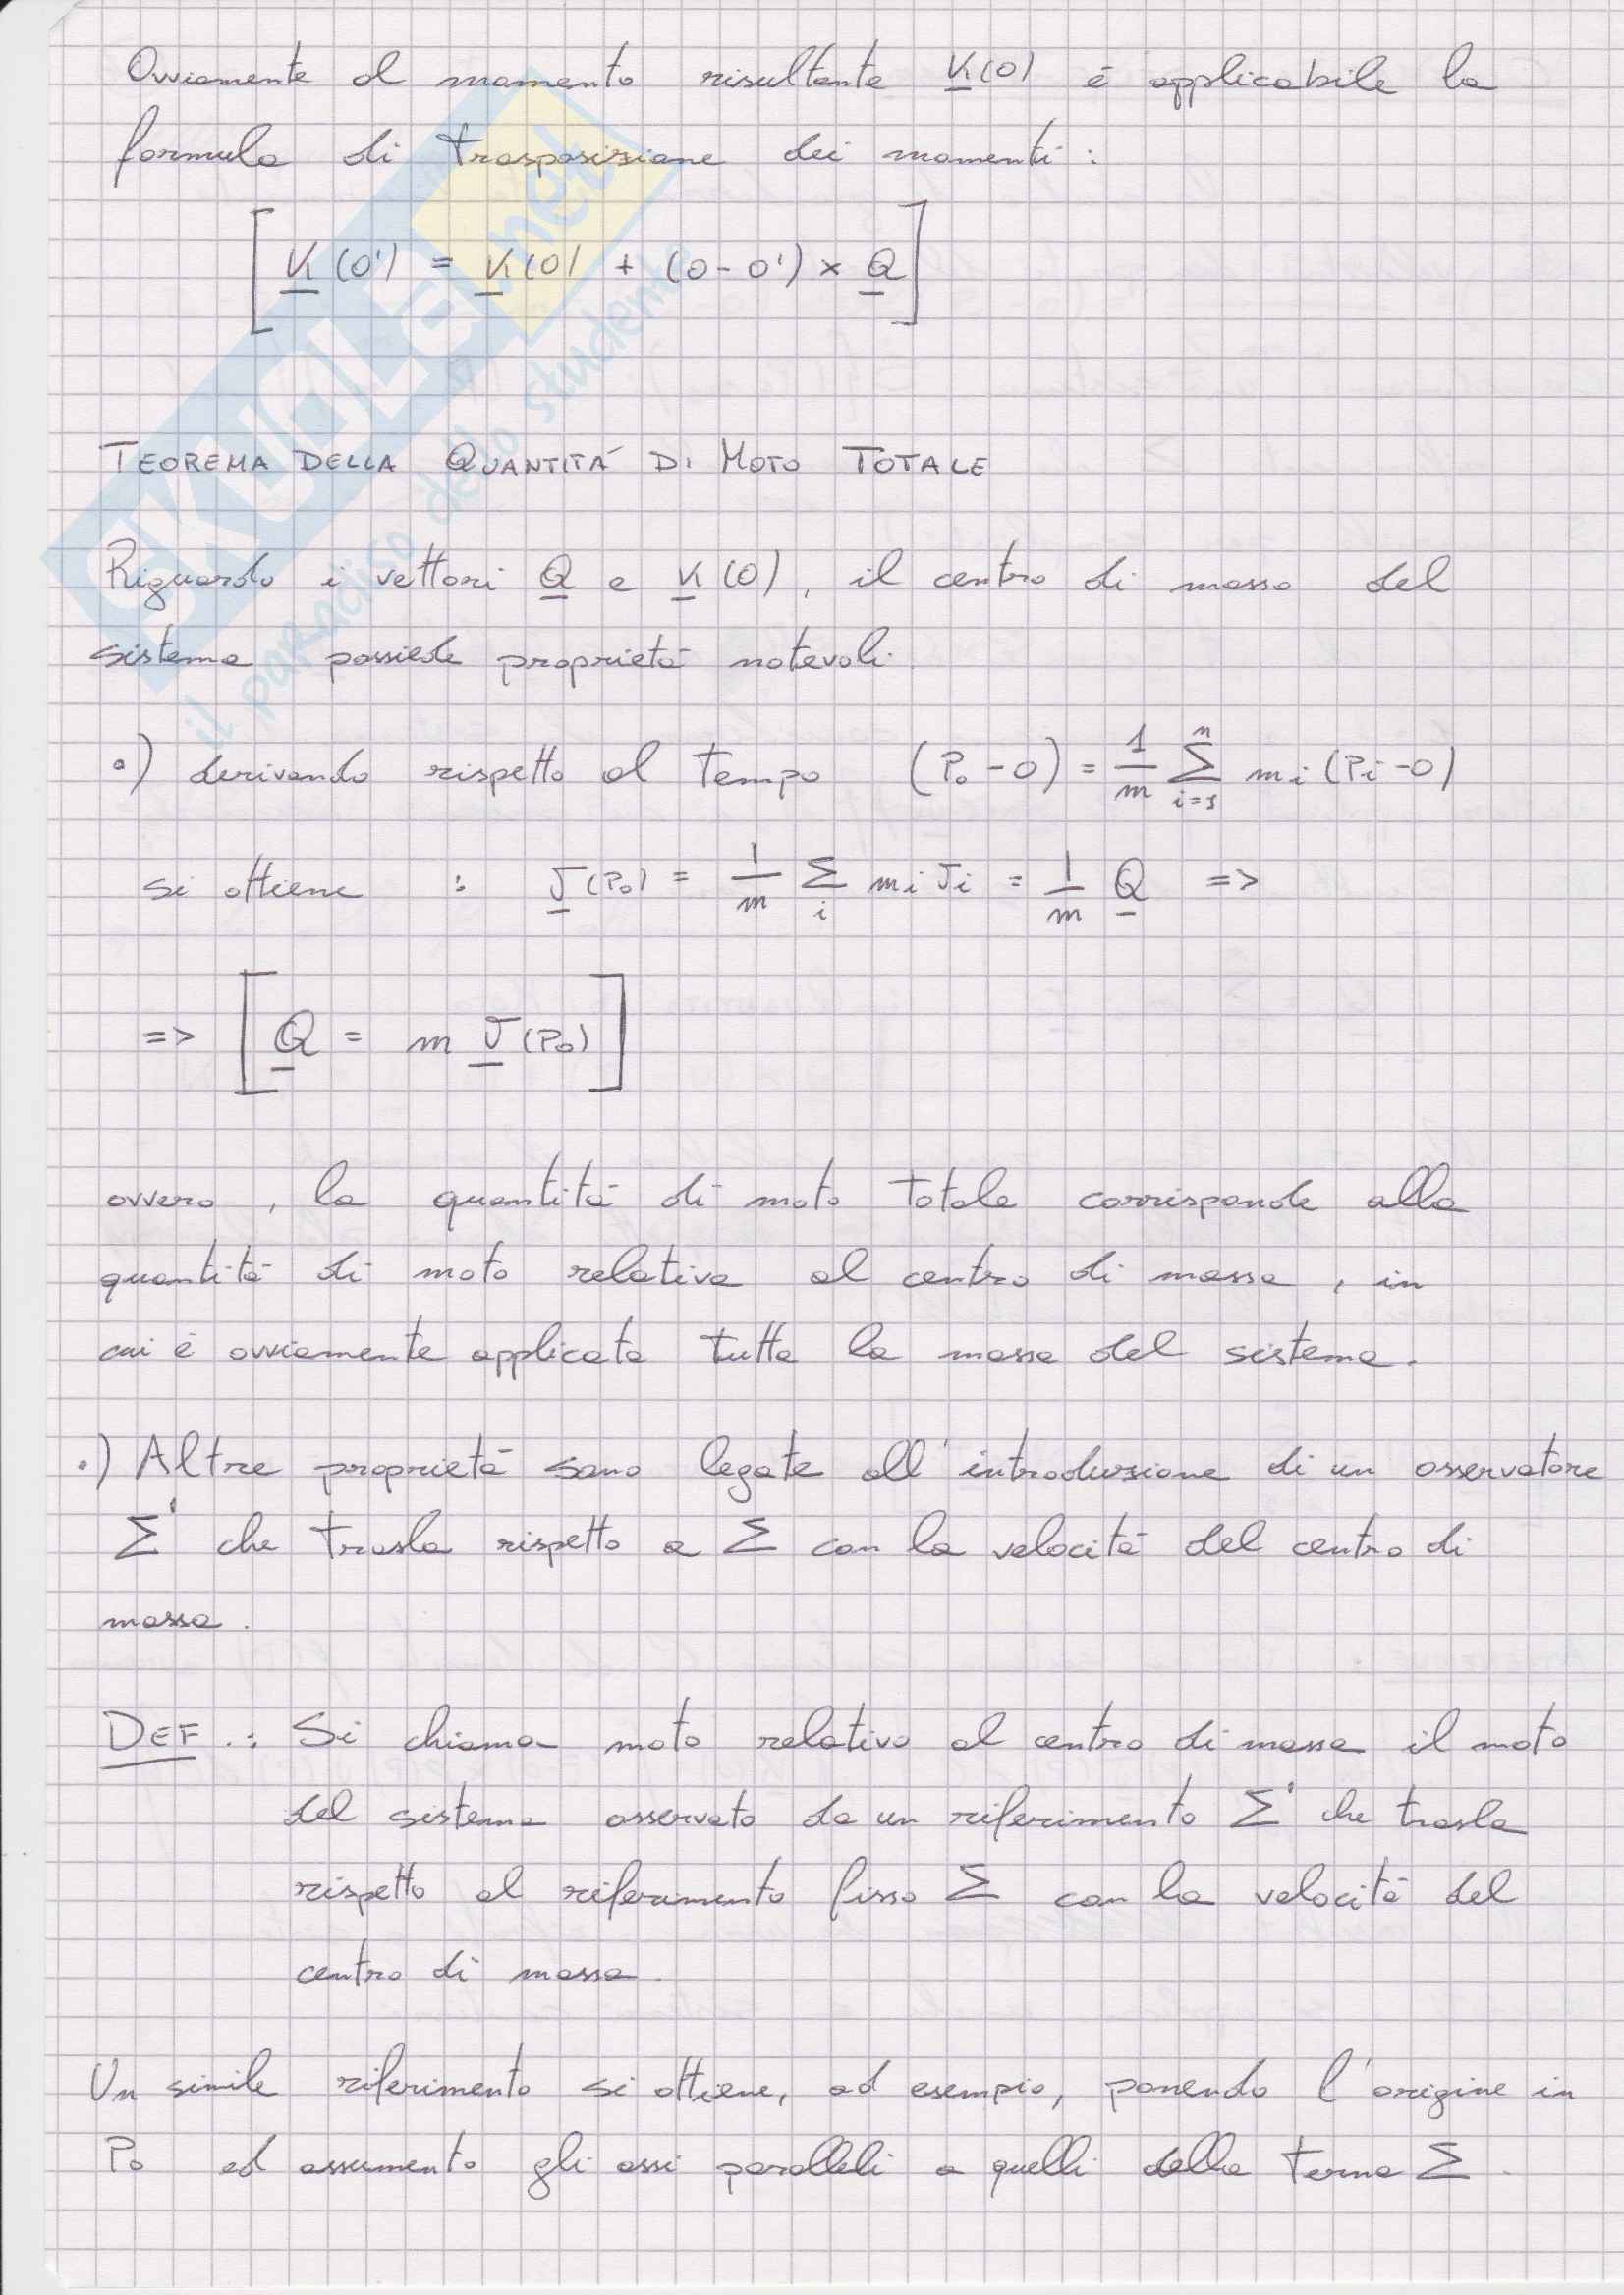 Ovviamente al momento risultante K(O) è applicabile la
formula di trasposizione dei momenti:
[ K(O') = K(O) + (O-O') × Q ]
TEOREMA DELLA QUANTITÀ DI MOTO TOTALE
Riguardo i vettori Q e K(O), il centro di massa del
sistema possiede proprietà notevoli.
•) derivando rispetto al tempo (P₀-O) = 1/m Σ_{i=1}^{n} mi (Pi-O)
si ottiene : v(P₀) = 1/m Σ_i mi vi = 1/m Q =>
=> [ Q = m v(P₀) ]
ovvero, la quantità di moto totale corrisponde alla
quantità di moto relativa al centro di massa, in
cui è ovviamente applicata tutta la massa del sistema.
•) Altre proprietà sono legate all'introduzione di un osservatore
Σ' che trasla rispetto a Σ con la velocità del centro di
massa.
DEF.: Si chiama moto relativo al centro di massa il moto
del sistema osservato da un riferimento Σ' che trasla
rispetto al riferimento fisso Σ con la velocità del
centro di massa.
Un simile riferimento si ottiene, ad esempio, ponendo l'origine in
P₀ ed assumento gli assi paralleli a quelli della terna Σ.
SKUOLA.net
il paradiso dello studente